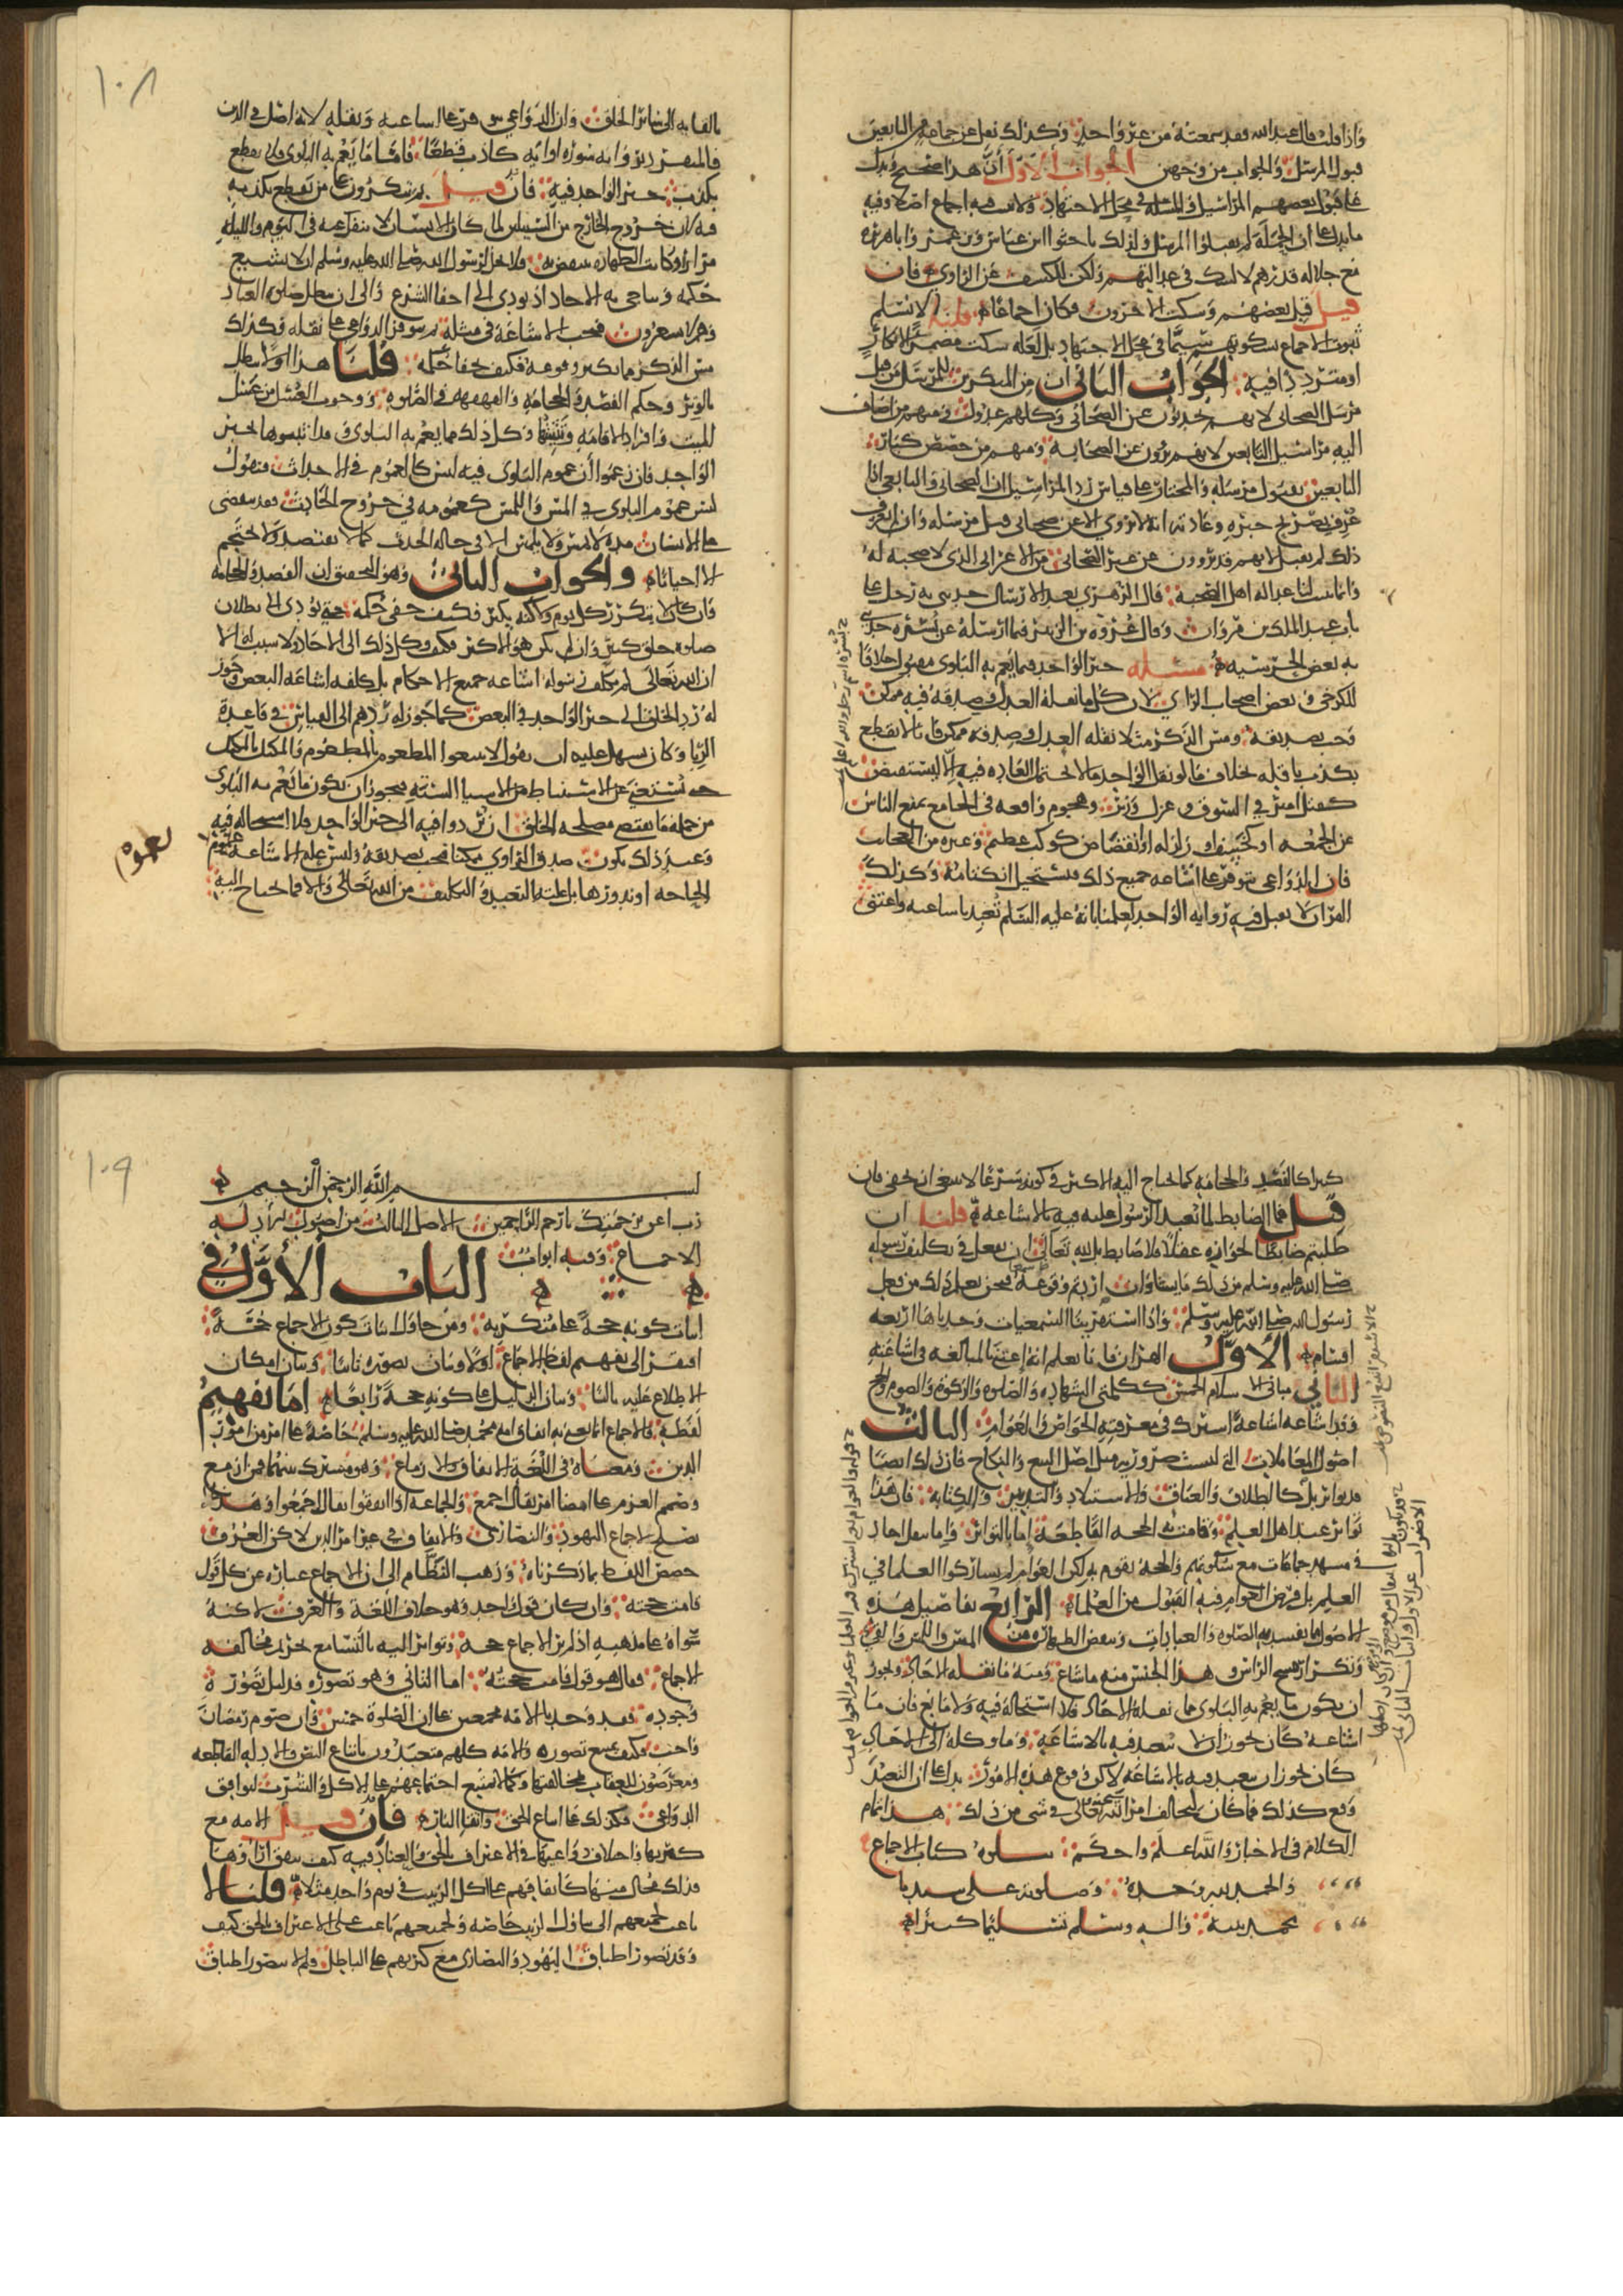 واذا قلت قال عبد الله فقد سمعته من غير واحد وكذلك نقل عن جماعة من التابعين
قبول المرسل والجواب من وجهين الجواب الاول أن هذا صحيح ويدل
على قبول بعضهم المراسيل والمسلة في محل الاجتهاد ولا يثبت فيه اجماع اصلا وفيه
ما يدل على ان الجملة لم يقبلوا المرسل ولذلك باحثوا ابن عباس وبن عمر وابا هريرة
مع جلالة قدرهم لا لشك في عدالتهم ولكن للكشف عن الراوي فان
قيل قبل بعضهم وسكت الاخرون فكان اجماعا قلنا لا نسلم
ثبوت الاجماع بسكوتهم سيما في محل الاجتهاد بل لعله سكت مضمرا للانكار
او مترددا فيه الجواب الثاني ان من المنكرين للمرسل من قبل
مرسل الصحابي لانهم يحدثون عن الصحابي وكلهم عدول ومنهم من اضاف
اليه مراسيل التابعين لانهم يروون عن الصحابة ومنهم من خصص كبار
التابعين بقبول مرسله والمختار على قياس رد المراسيل ان الصحابي والتابعي اذا
عرف بصريح خبره وعادته انه لا يروي الا عن صحابي قبل مرسله وان لم يعرف
ذلك لم يقبل لانهم قد يروون عن غير الصحابي من الاعراب الذي لا صحبة له
وانما ثبت لنا عدالة اهل الصحبة قال الزهري بعد الارسال حدثني به رجل على
باب عبد الملك بن مروان وقال عروة بن الزبير فيما ارسله عن بسرة حدثني
به بعض الحرسية مسئلة خبر الواحد فيما يعم به البلوى مقبول خلافا
للكرخي وبعض اصحاب الراي لان كل ما نقله العدل وصدقه فيه ممكن
وجب تصديقه ومس الذكر مثلا نقله العدل وصدقه ممكن فانا لا نقطع
بكذب ناقله بخلاف ما لو نقل الواحد ما لا يحتمل العادة فيه ان لا يستفيض
كقتل امير في السوق وعزل وزير وهجوم واقعة في الجامع يمنع الناس
عن الجمعة او كخسف او زلزلة او انقضاض كوكب عظيم وغيره من العجائب
فان الدواعي تتوفر على اشاعة جميع ذلك ويستحيل انكتامه وكذلك
القران لا يقبل فيه رواية الواحد لعلمنا بانه عليه السلم تعبد باشاعته واعتنى
١٠٨
بالقايه الى سائر الخلق وان الدواعي تتوفر على اشاعته ونقله لانه اصل في الدين
فالمنفرد برواية سورة او اية كاذب قطعا فاما ما يعم به البلوى فلا نقطع
بكذب خبر الواحد فيه فان قيل بم تنكرون على من يقطع بكذبه
فيه لان خروج الخارج من السبيلين لما كان الانسان لا ينفك عنه في اليوم والليلة
مرارا وكانت الطهارة تنتقض به فلا يحل لرسول الله صلى الله عليه وسلم ان لا يشيع
حكمه ويناجي به الاحاد اذ يودي الى اخفا الشرع والى ان تبطل صلوة العباد
وهم لا يشعرون فتجب الاشاعة في مثله ثم تتوفر الدواعي على نقله وكذلك
مس الذكر مما يكثر وقوعه فكيف يخفا حكمه قلنا هذا اولا يبطل
بالوتر وحكم الفصد والحجامة والقهقهة في الصلوة ووجوب الغسل من غسل
الميت وافراد الاقامة وتثنيتها وكل ذلك مما يعم به البلوى وقد اثبتوها بخبر
الواحد فان زعموا ان عموم البلوى فيه ليس كالعموم في الاحداث فنقول
ليس عموم البلوى في المس واللمس كعمومه في خروج الحادث فقد تنقضي
على الانسان مدة لا يمس ولا يلمس الا في حالة الحدث كما لا يفتصد ولا يحتجم
الا احيانا والجواب الثاني وهو التحقيق ان الفصد والحجامة
وان كان لا يتكرر كل يوم ولكنه يكثر فكيف خفي حكمه حتى يودي الى بطلان
صلوة خلق كثير وان لم يكن هو الاكثر فكيف وكل ذلك الى الاحاد ولا سبب له الا
ان الله تعالى لم يكلف رسوله اشاعة جميع الاحكام بل كلفه اشاعة البعض وجوز
له رد الخلق الى خبر الواحد في البعض كما جوز له ردهم الى القياس في قاعدة
الربا وكان يسهل عليه ان يقول لا تبيعوا المطعوم بالمطعوم والمكيل بالمكيل
حتى يستغنى عن الاستنباط من الاشيا الستة فيجوز ان يكون ما يعم به البلوى
من جملة ما يقتضي مصلحة الخلق ان يردوا فيه الى خبر الواحد فلا استحالة فيه
وعند ذلك يكون صدق الراوي ممكنا فيجب تصديقه وليس علة الاشاعة عموم
الحاجة او ندورها بل علته التعبد والتكليف من الله تعالى والا فما يحتاج اليه
كثير كالفصد والحجامة كما يحتاج اليه الاكثر في كونه شرعا لا ينبغي ان يخفى فان
قيل فما الضابط لما تعبد الرسول عليه فيه بالاشاعة قلنا ان
طلبتم ضابطا لجوازه عقلا فلا ضابط بل لله تعالى ان يفعل في تكليف رسوله
صلى الله عليه وسلم من ذلك ما يشاء وان اردتم وقوعه فنحن نعلم ذلك من فعل
رسول الله صلى الله عليه وسلم واذا استقرينا السمعيات وجدناها اربعة
اقسام الاول القران فانا نعلم انه اعتنى بالمبالغة في اشاعته
الثاني مباني الاسلام الخمس ككلمتي الشهادة والصلوة والزكوة والصوم والحج
وقد اشاعه اشاعة اشترك في معرفته الخواص والعوام الثالث
اصول المعاملات التي ليست ضرورية مثل اصل البيع والنكاح فان ذلك ايضا
قد تواتر بل كالطلاق والعتاق والاستلاد والتدبير والكتابة فان هذا
تواتر عند اهل العلم وقامت به الحجة القاطعة اما بالتواتر واما بنقل احاد
في مشهد جماعات مع سكوتهم والحجة تقوم به لكن العوام لم يشاركوا العلما في
العلم بل فرض العوام فيه القبول من العلماء الرابع تفاصيل هذه
الاصول فما يفسد به الصلوة والعبادات وينقض الطهارة من المس واللمس والقيء
وتكرار مسح الراس وهذا الجنس منه ما شاع ومنه ما نقله الاحاد ويجوز
ان يكون مما يعم به البلوى فما نقله الاحاد فلا استحالة فيه ولا مانع فان ما
اشاعه كان يجوز ان لا يتعبد فيه بالاشاعة وما وكله الى الاحاد
كان يجوز ان يتعبد فيه بالاشاعة لاكن وقوع هذه الامور يدل على ان التعبد
وقع كذلك فما كان يخالف امر الله تعالى في شي من ذلك هذا تمام
الكلام في الاخبار والله اعلم واحكم يتلوه كتاب الاجماع
والحمد لله وحده وصلوته على سيدنا
محمد نبيه واله وسلم تسليما كثيرا
١٠٩
بسم الله الرحمن الرحيم
رب اعن برحمتك يا ارحم الراحمين الاصل الثالث من اصول الادلة
الاجماع وفيه ابواب الباب الأول في
اثبات كونه حجة على منكريه ومن حاول اثبات كون الاجماع حجة
افتقر الى تفهيم لفظ الاجماع اولا وبيان تصوره ثانيا وبيان امكان
الاطلاع عليه ثالثا وبيان الدليل على كونه حجة رابعا اما تفهيم
لفظه فالاجماع انما نعني به اتفاق امة محمد صلى الله عليه وسلم خاصة على امر من امور
الدين ومعناه في اللغة الاتفاق والازماع وهو مشترك بينهما فمن ازمع
وصمم العزم على امضا امر يقال اجمع والجماعة اذا اتفقوا يقال اجمعوا وهذا
يصلح لاجماع اليهود والنصارى والاتفاق في غير امر الدين لاكن العرف
خصص اللفظ بما ذكرناه وذهب النظام الى ان الاجماع عبارة عن كل قول
قامت حجته وان كان قول واحد وهو خلاف اللغة والعرف لاكنه
سواه على مذهبه اذ لم ير الاجماع حجة وتواتر اليه بالتسامع تحريم مخالفة
الاجماع فقال هو قول قامت حجته اما الثاني وهو تصوره فدليل تصوره
وجوده فقد وجدنا الامة مجمعين على ان الصلوة خمس وان صوم رمضان
واجب وكيف يمتنع تصوره والامة كلهم متعبدون باتباع النص والادلة القاطعة
ومعرضون للعقاب بمخالفتها وكما لا يمتنع اجتماعهم على الاكل والشرب لتوافق
الدواعي فكذلك على اتباع الحق واتقا النار فان قيل الامة مع
كثرتها واختلاف دواعيها في الاعتراف بالحق والعناد فيه كيف تتفق اراوها
فذلك محال منها كاتفاقهم على اكل الزبيب في يوم واحد مثلا قلنا لا
باعث لجميعهم الى تناول الزبيب خاصة ولجميعهم باعث على الاعتراف بالحق كيف
وقد تصور اطباق اليهود والنصارى مع كثرتهم على الباطل فلم لا يتصور اطباق